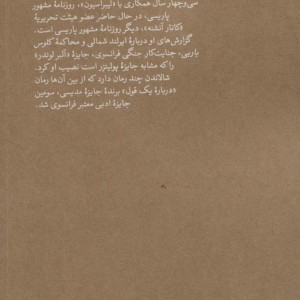 سی‌وچهار سال همکاری با «لیبراسیون»، روزنامهٔ مشهور
پاریسی، در حال حاضر عضو هیئت تحریریهٔ
«کانار آنشنه»، دیگر روزنامهٔ مشهور پاریسی است.
گزارش‌های او دربارهٔ ایرلند شمالی و محاکمهٔ کلوس
باربی، جنایت‌کار جنگی فرانسوی، جایزهٔ «آلبر لوندر»
را که مشابه جایزهٔ پولیتزر است نصیب او کرد.
شالاندن چند رمان دارد که از بین آن‌ها رمان
«دربارهٔ یک قول» برندهٔ جایزهٔ مدیسی، سومین
جایزهٔ ادبی معتبر فرانسوی شد.